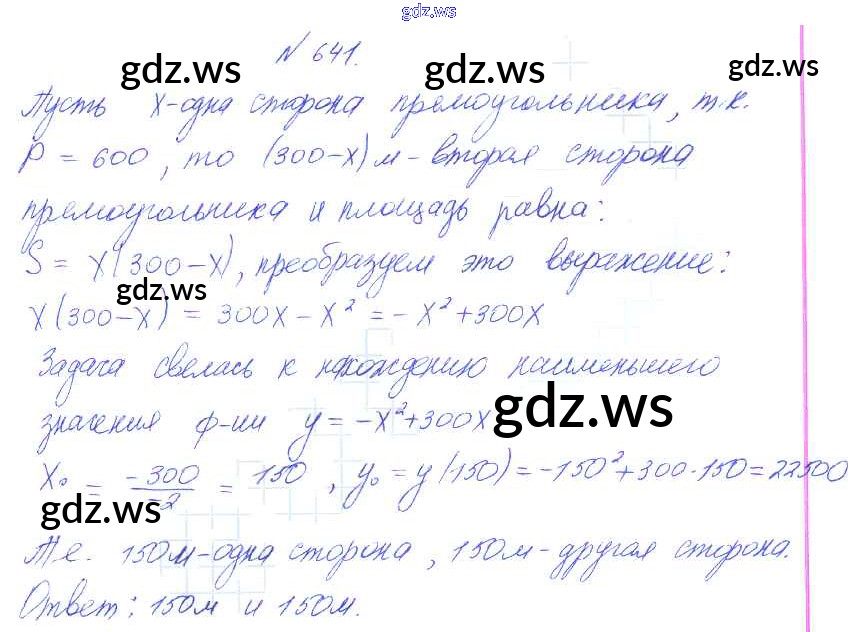 gdz.ws
№ 641.
gdz.ws gdz.ws gdz.ws
Пусть x-одна сторона прямоугольника, т.к.
P = 600, то (300-x) м - вторая сторона
прямоугольника и площадь равна:
S = x(300-x), преобразуем это выражение:
gdz.ws
x(300-x) = 300x - x² = -x² + 300x
Задача свелась к нахождению наименьшего
значения ф-ии y = -x²+300x
gdz.ws
x₀ = -300/-2 = 150, y₀ = y(150) = -150²+300·150 = 22500
gdz.ws
Т.е. 150м-одна сторона, 150м-другая сторона.
Ответ: 150м и 150м.